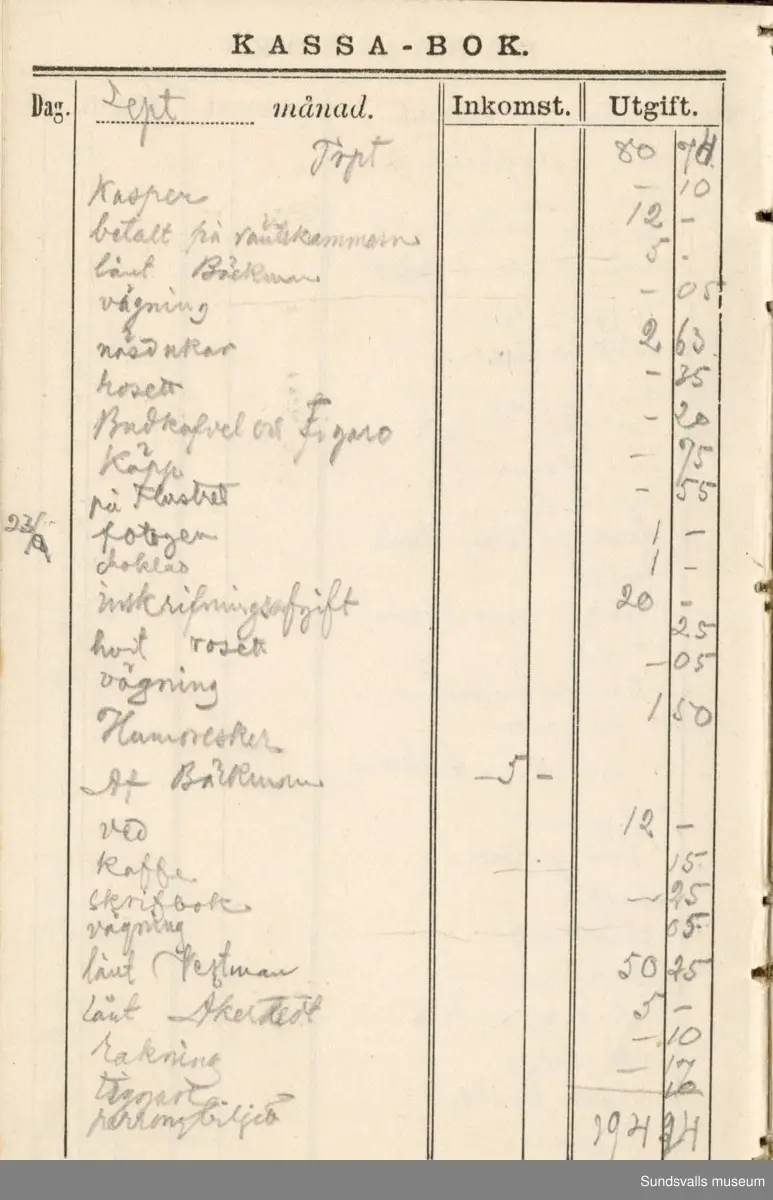 KASSA-BOK.
Dag. Sept månad. Inkomst. Utgift.
Trpt 80 74
Kasper — 10
betalt på räntekammarn 12 —
lånt Bäckman 5 -
vägning — 05
näsdukar 2 63
rosett — 35
Budkafvel och Figaro — 20
Käpp — 75
på Flustret — 55
23/9 fotogen 1 —
choklad 1 —
inskrifningsafgift 20 —
hvit rosett 25
vägning — 05
Humoresker 1 50
Af Bäckman — 5 —
ved 12 —
kaffe 15
skrifbok — 25
vägning 05
lånt Vestman 50 25
Lånt Åkerstedt 5 —
rakning — 10
— 17
perrongbiljett 10
194 94
Sundsvalls museum